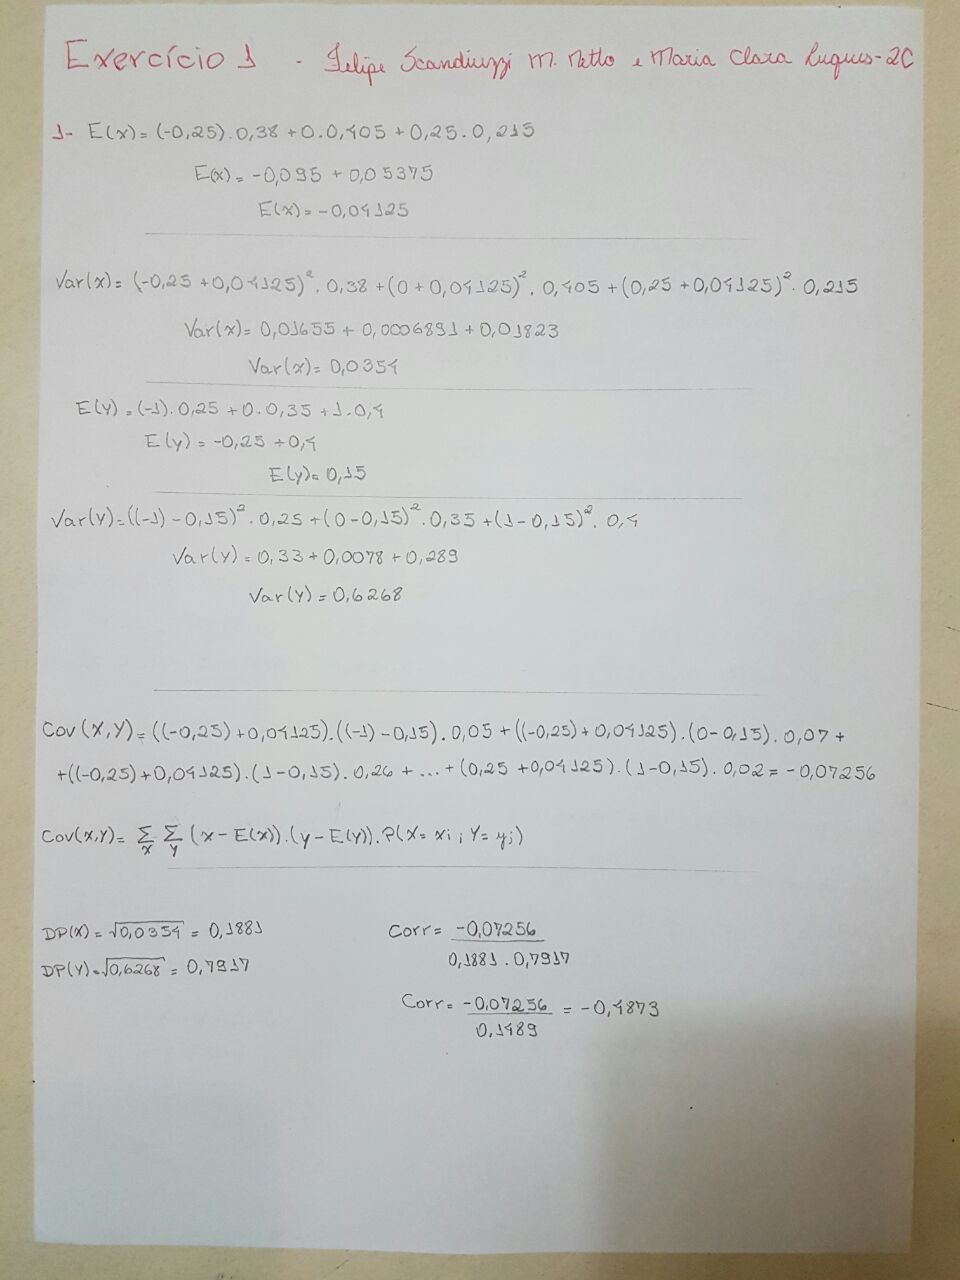 Exercício 1 - Felipe Scandiuzzi M. Netto e Maria Clara Luques - 2C
1- E(x) = (-0,25).0,38 + 0.0,405 + 0,25.0,215
E(x) = -0,095 + 0,05375
E(x) = -0,04125
Var(x) = (-0,25 + 0,04125)². 0,38 + (0 + 0,04125)². 0,405 + (0,25 + 0,04125)². 0,215
Var(x) = 0,01655 + 0,0006891 + 0,01823
Var(x) = 0,0354
E(y) = (-1).0,25 + 0.0,35 + 1.0,4
E(y) = -0,25 + 0,4
E(y) = 0,15
Var(y) = ((-1) - 0,15)². 0,25 + (0 - 0,15)². 0,35 + (1 - 0,15)². 0,4
Var(y) = 0,33 + 0,0078 + 0,289
Var(y) = 0,6268
Cov(X,Y) = ((-0,25) + 0,04125).((-1) - 0,15). 0,05 + ((-0,25) + 0,04125).(0 - 0,15). 0,07 +
+((-0,25) + 0,04125).(1 - 0,15). 0,26 + ... + (0,25 + 0,04125).(1 - 0,15). 0,02 = -0,07256
Cov(x,y) = Σx Σy (x - E(x)).(y - E(y)). P(X = xi ; Y = yj)
DP(X) = √0,0354 = 0,1881
Corr = -0,07256 / 0,1881 . 0,7917
DP(Y) = √0,6268 = 0,7917
Corr = -0,07256 / 0,1489 = -0,4873